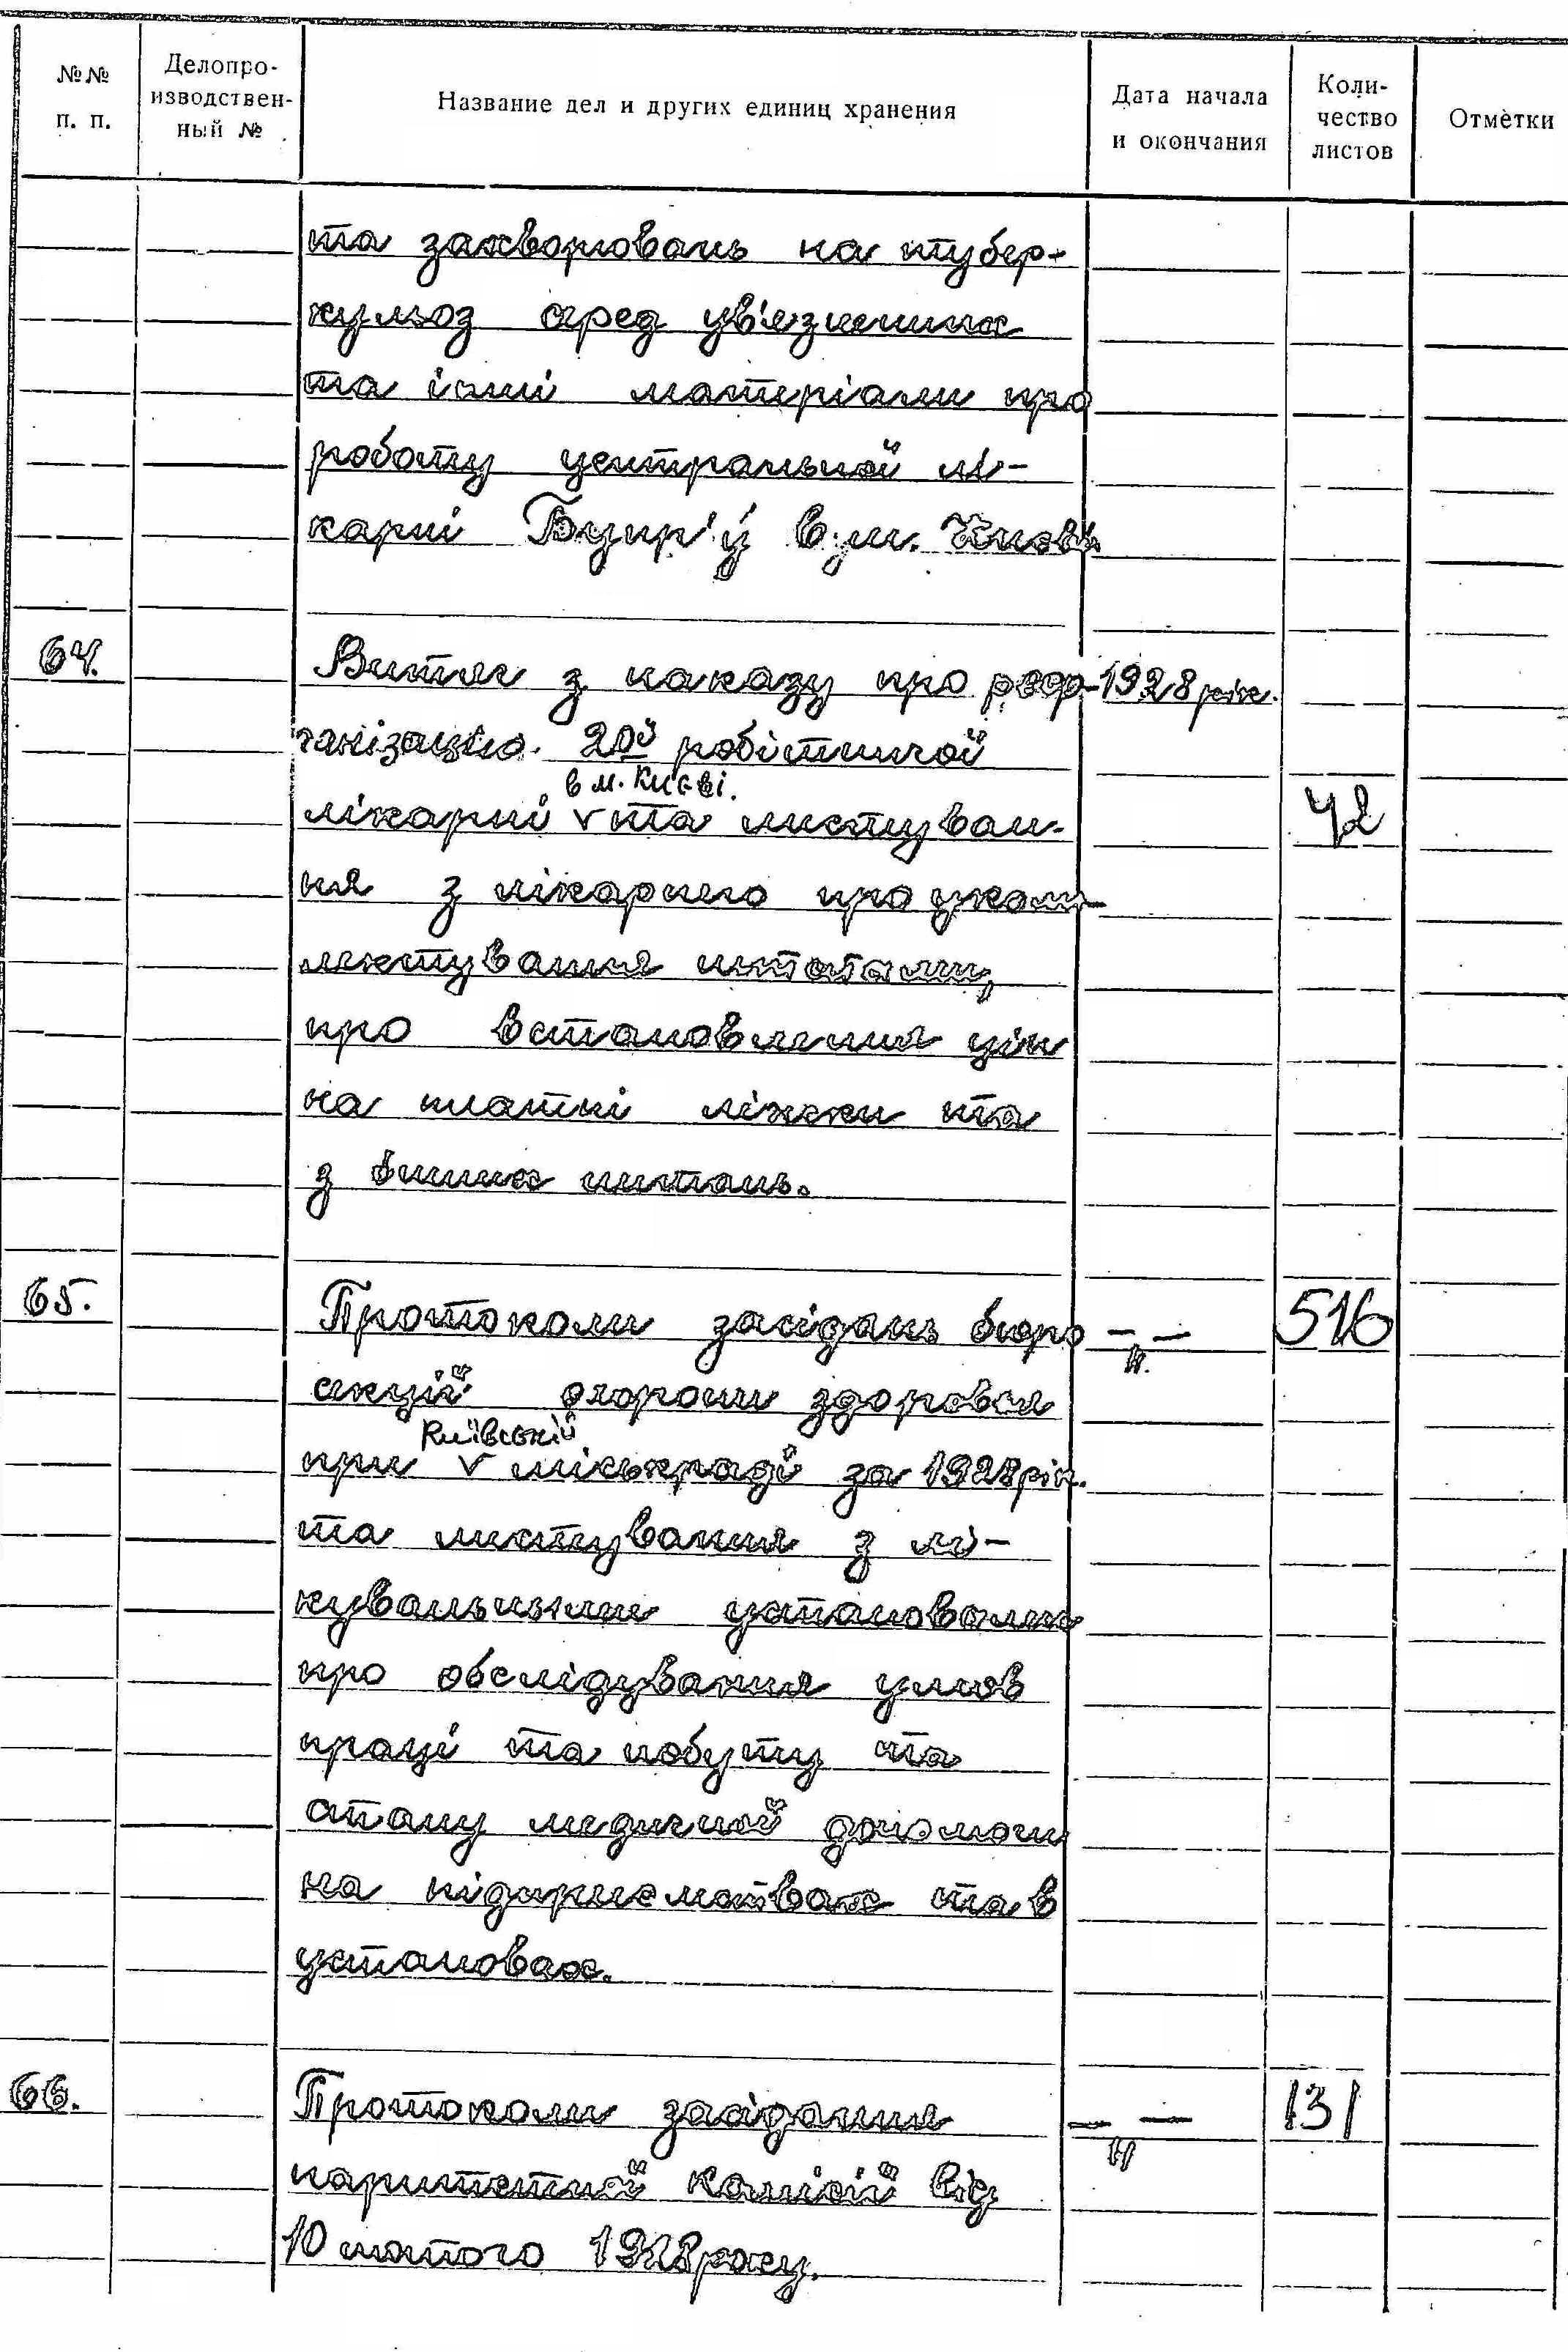 №№ п. п.
Делопроизводствен-ный №
Название дел и других единиц хранения
Дата начала и окончания
Количество листов
Отметки
та захворювань на тубер-
кульоз серед ув'язнених
та інші матеріали про
роботу центральной лі-
карні Бупр'у в м. Києві
64. Витяг з наказу про реор- 1928 рік.
ганізацію 20й робітничой
в м. Києві.
лікарні v та листуван- 42
ня з лікарнею про уком-
плектування штатами,
про встановлення цін
на платні ліжки та
з інших питань.
65. Протоколи засідань бюро —"— 516
секцій охорони здоровья
Київській
при v міськраді за 1928 рік.
та листування з лі-
кувальними установами
про обслідування умов
праці та побуту та
стану медичной допомоги
на підприємствах та в
установах.
66. Протоколи засідання —"— 131
паритетной комісій від
10 лютого 1928 року.